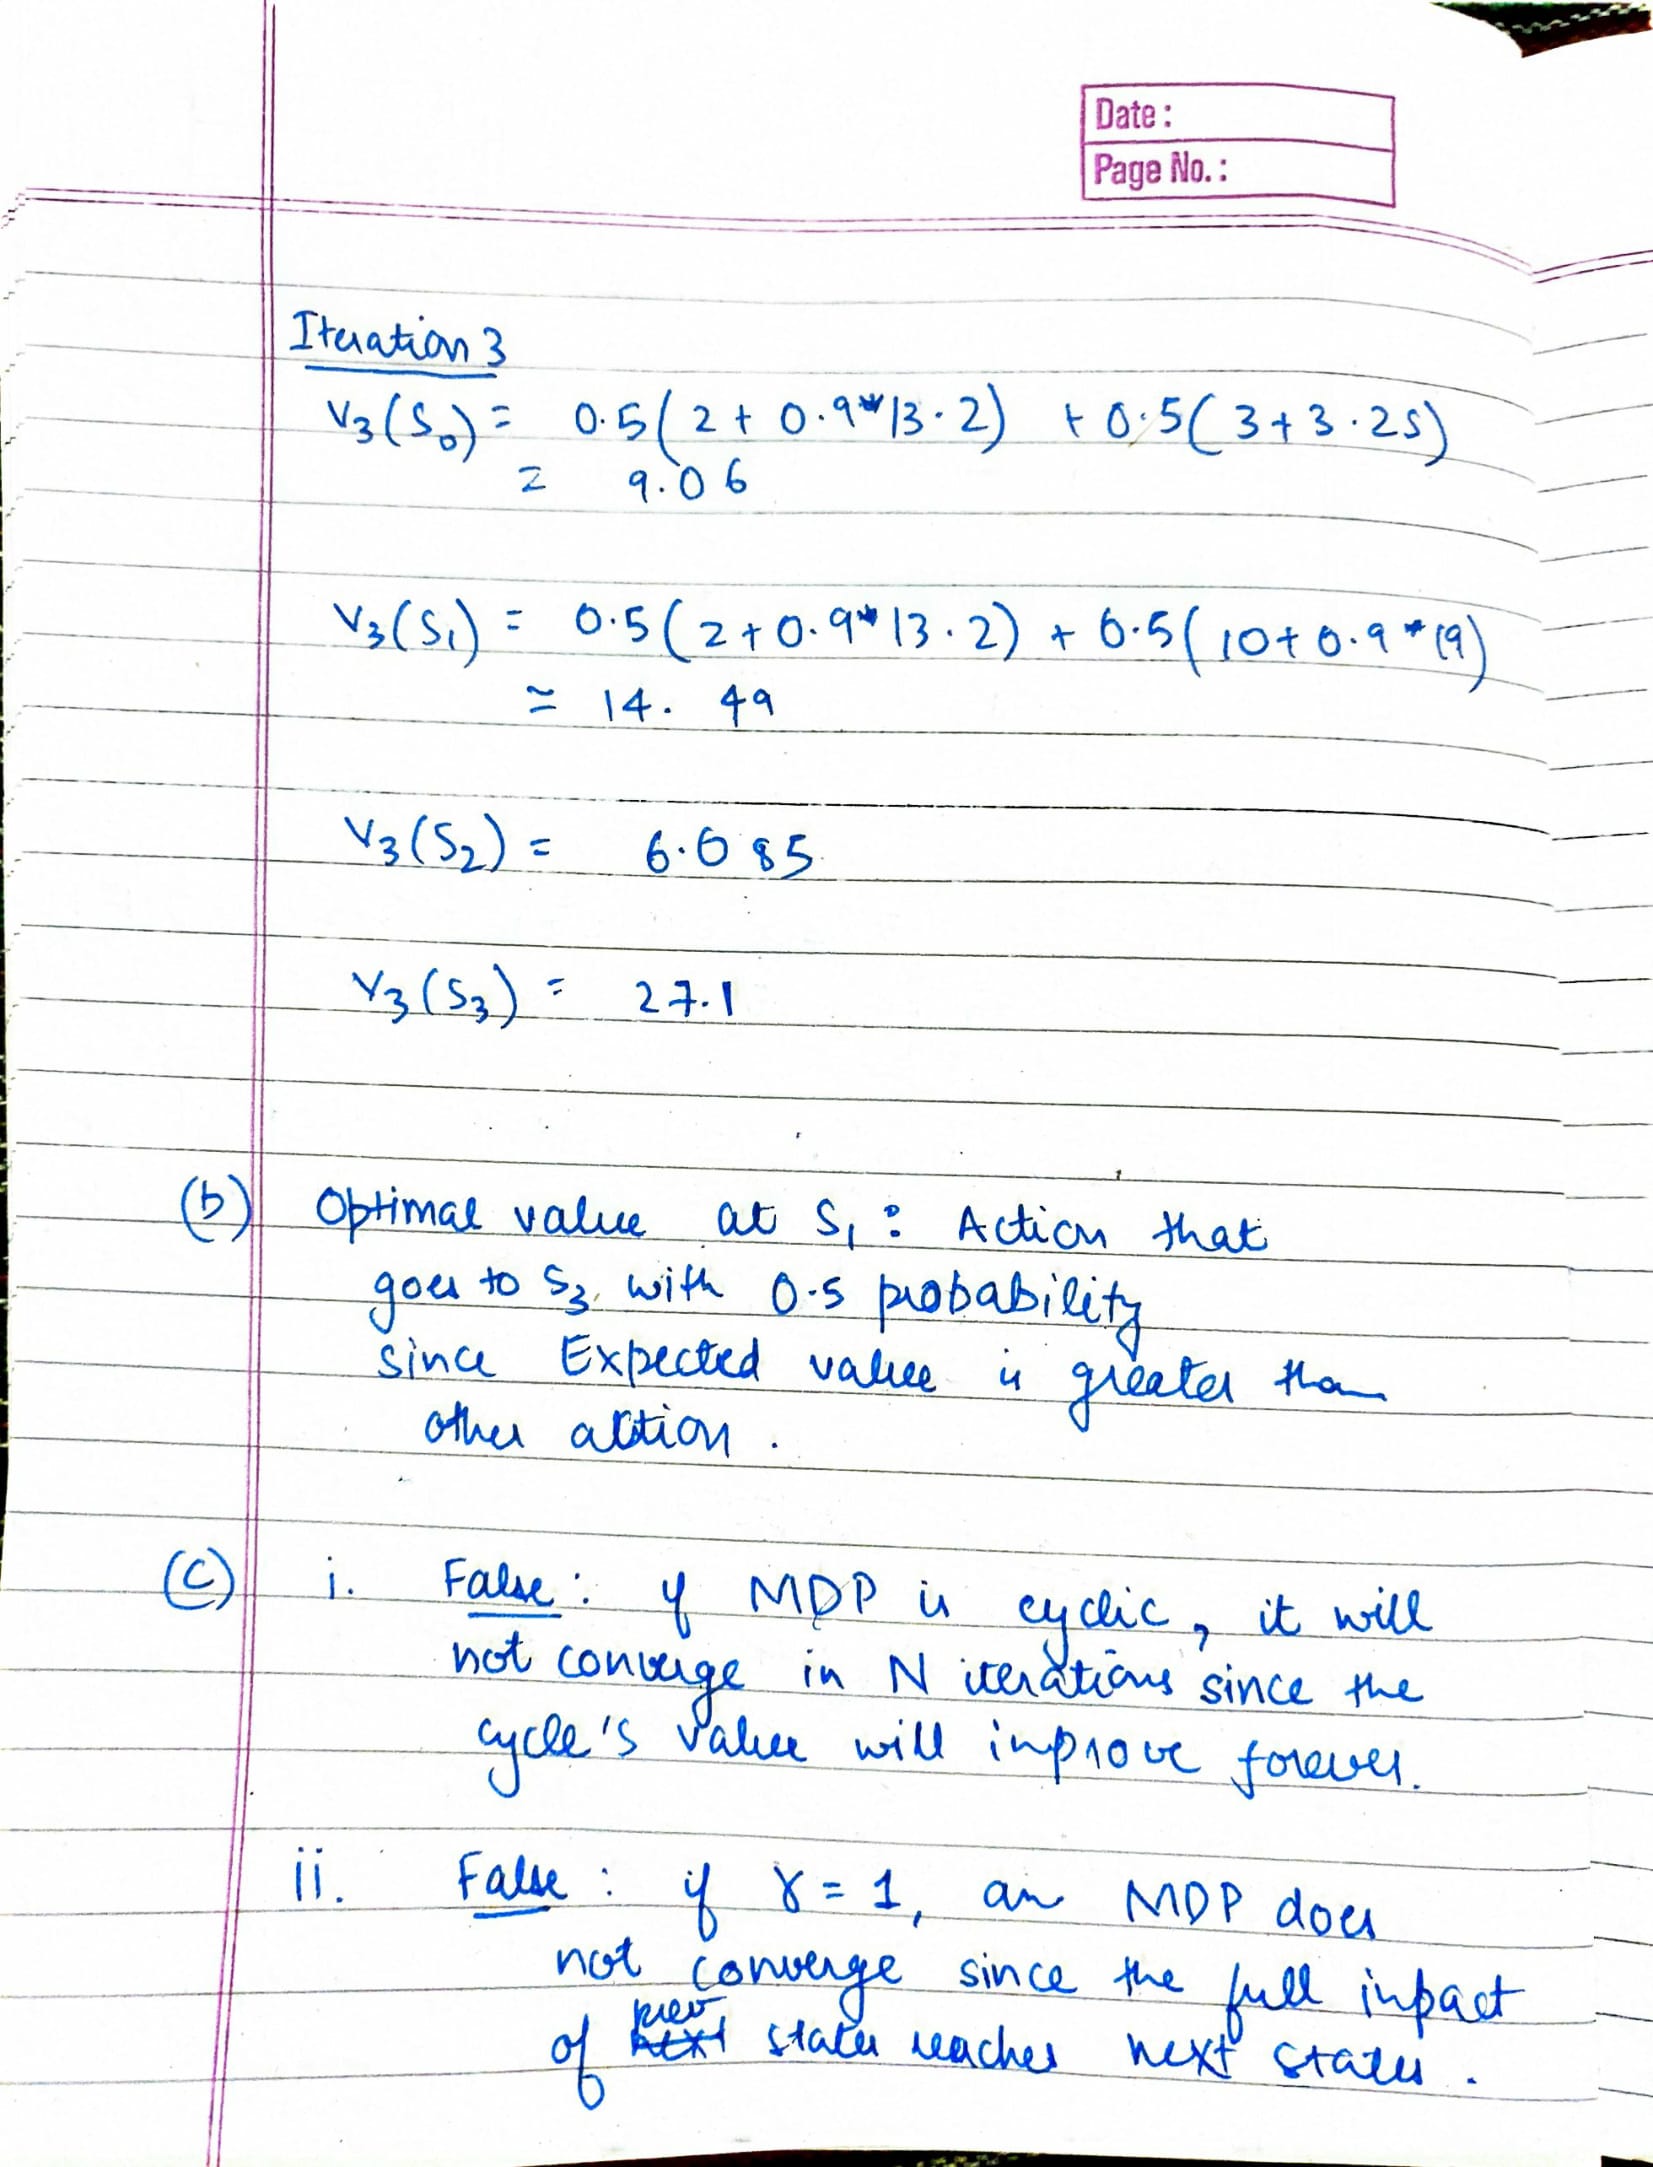 Date :
Page No. :
Iteration 3
V3(S0) = 0.5(2 + 0.9*13.2) + 0.5(3+3.25)
= 9.06
V3(S1) = 0.5(2+0.9*13.2) + 0.5(10+0.9*19)
≈ 14.49
V3(S2) = 6.085
V3(S3) = 27.1
(b) Optimal value at S1 : Action that
goes to S3 with 0.5 probability
since Expected value is greater than
other action .
(c) i. False : if MDP is cyclic, it will
not converge in N iterations since the
cycle's value will improve forever.
ii. False : if γ = 1, an MDP does
not converge since the full impact
of prev states reaches next states .